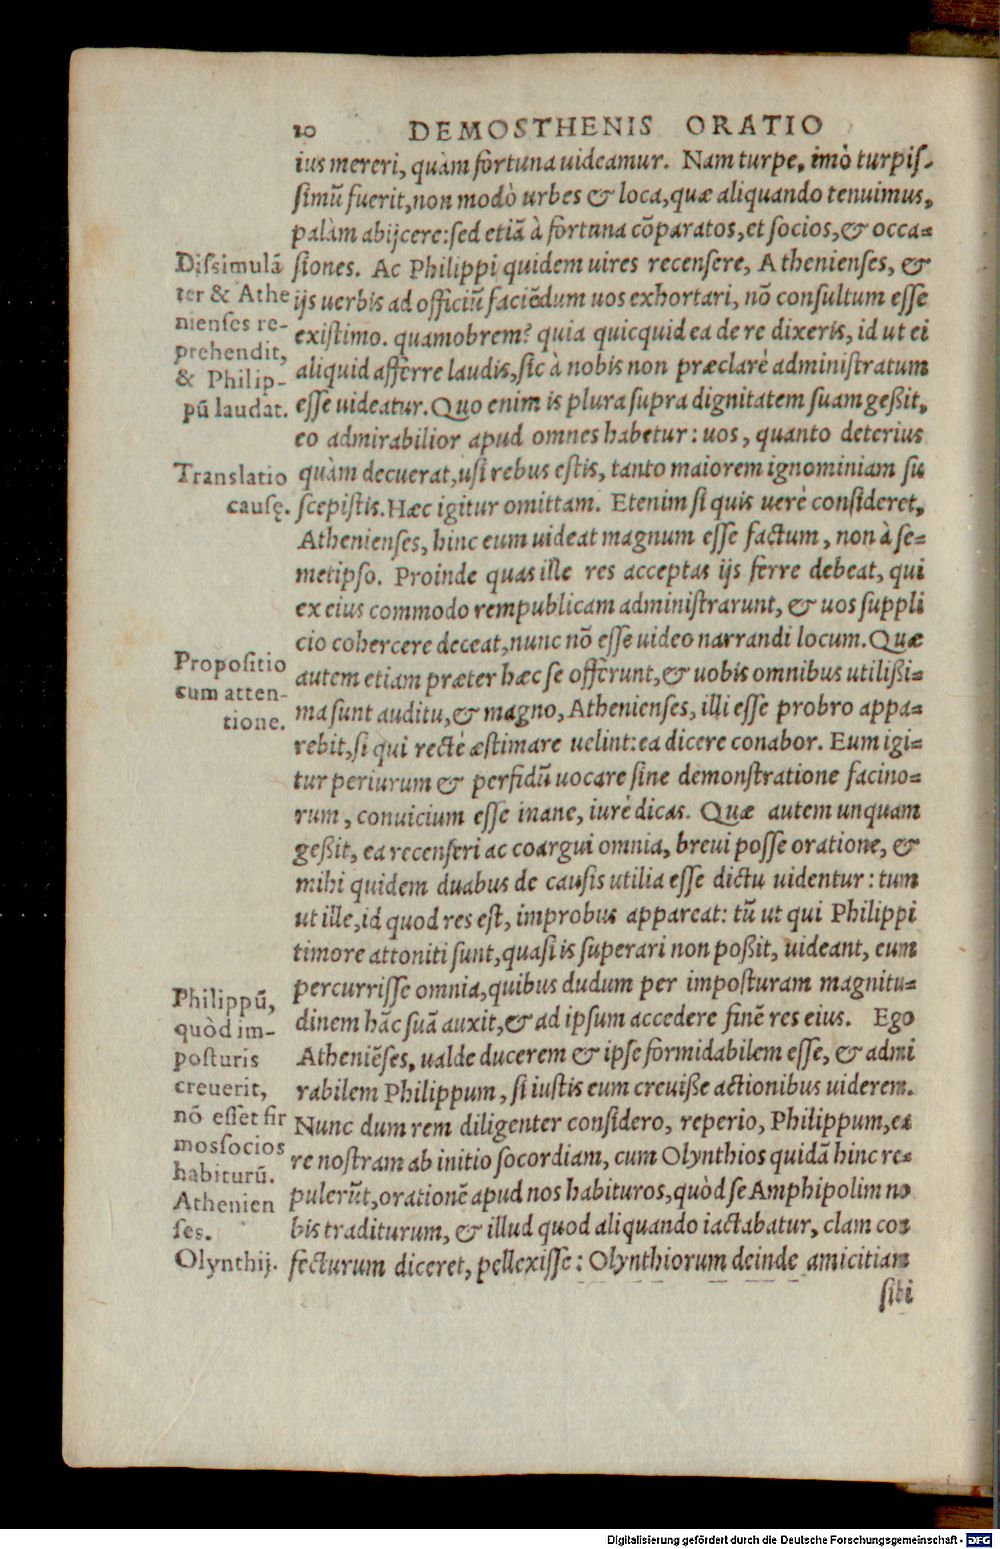 20 DEMOSTHENIS ORATIO
ius mereri, quàm fortuna uideamur. Nam turpe, imò turpis-
simũ fuerit, non modò urbes & loca, quæ aliquando tenuimus,
palàm abijcere: sed etiã à fortuna cõparatos, et socios, & occa=
siones. Ac Philippi quidem uires recensere, Athenienses, &
ijs uerbis ad officiũ faciẽdum uos exhortari, nõ consultum esse
existimo. quamobrem? quia quicquid ea de re dixeris, id ut ei
aliquid afferre laudis, sic à nobis non præclarè administratum
esse uideatur. Quo enim is plura supra dignitatem suam geßit,
eo admirabilior apud omnes habetur: uos, quanto deterius
quàm decuerat, usi rebus estis, tanto maiorem ignominiam su
scepistis. Hæc igitur omittam. Etenim si quis uerè consideret,
Athenienses, hinc eum uideat magnum esse factum, non à se=
metipso. Proinde quas ille res acceptas ijs ferre debeat, qui
ex eius commodo rempublicam administrarunt, & uos suppli
cio cohercere deceat, nunc nõ esse uideo narrandi locum. Quæ
autem etiam præter hæc se offerunt, & uobis omnibus utilißi=
ma sunt auditu, & magno, Athenienses, illi esse probro appa=
rebit, si qui rectè æstimare uelint: ea dicere conabor. Eum igi=
tur periurum & perfidũ uocare sine demonstratione facino=
rum, conuicium esse inane, iurè dicas. Quæ autem unquam
geßit, ea recenseri ac coargui omnia, breui posse oratione, &
mihi quidem duabus de causis utilia esse dictu uidentur: tum
ut ille, id quod res est, improbus appareat: tũ ut qui Philippi
timore attoniti sunt, quasi is superari non poßit, uideant, eum
percurrisse omnia, quibus dudum per imposturam magnitu=
dinem hãc suã auxit, & ad ipsum accedere finẽ res eius. Ego
Atheniẽses, ualde ducerem & ipse formidabilem esse, & admi
rabilem Philippum, si iustis eum creuiße actionibus uiderem.
Nunc dum rem diligenter considero, reperio, Philippum, ex
re nostram ab initio socordiam, cum Olynthios quidã hinc re=
pulerũt, orationẽ apud nos habituros, quòd se Amphipolim no
bis traditurum, & illud quod aliquando iactabatur, clam con
fecturum diceret, pellexisse: Olynthiorum deinde amicitiam
sibi
Dissimulã
ter & Athe
nienses re-
prehendit,
& Philip-
pũ laudat.
Translatio
causę.
Propositio
cum atten-
tione.
Philippũ,
quòd im-
posturis
creuerit,
nõ esset fir
mos socios
habiturũ.
Athenien
ses.
Olynthij.
Digitalisierung gefördert durch die Deutsche Forschungsgemeinschaft - DFG